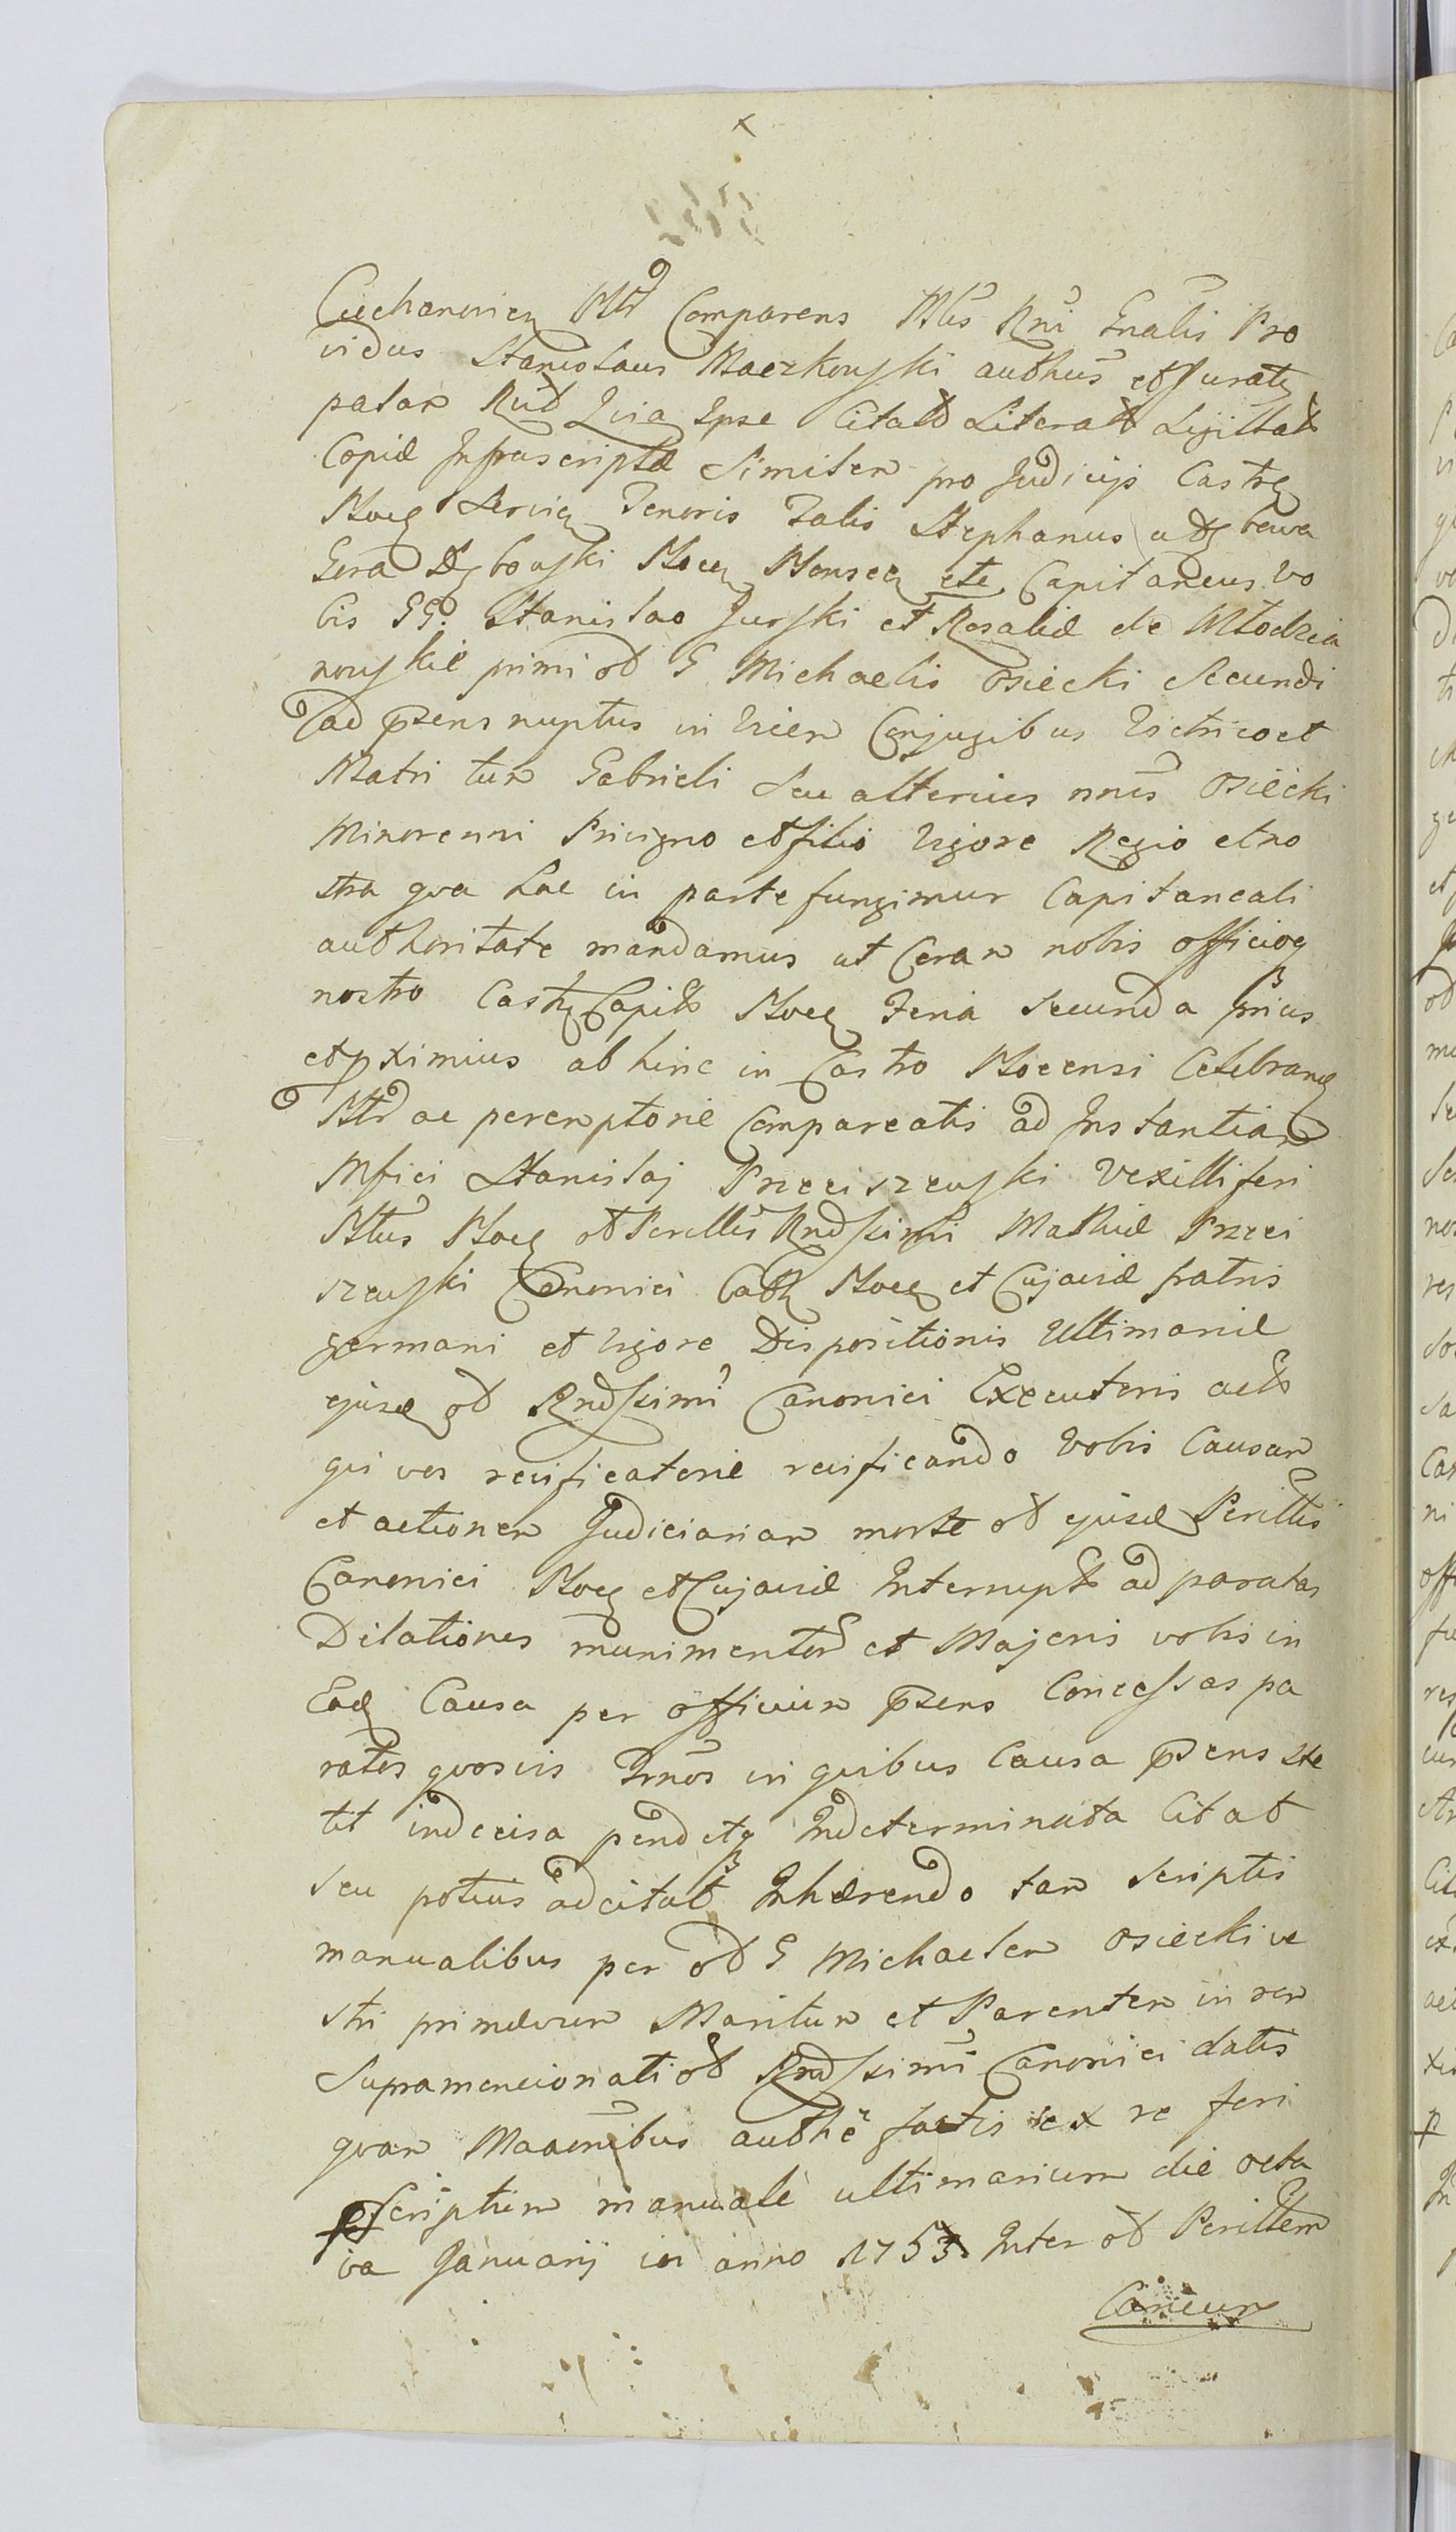 x
Ciechanovien Pltr Comparens Mtis Rni Gnalis Pro
vidus Stanislaus Maczkowski authus et Jurate
palan Rnd Quia Ipse Citatt Literatt Sigillatt
Copiæ Infrascriptæ Similem pro Judicijs Castr
Ploc Servien Tenoris Talis Stephanus a
Gora Dębowski Plocen etc Capitaneus vo
bis GG. Stanislao Jurski et Rosaliæ de Młodzia
nowskie primi od G Michaelis Osiecki Secundi
ad pzens nuptus in vicem Conjugibus Victrico et
Matri tum Gabrieli Seu alterius nnis Osiecki
Minorenni Privigno et filio vigore Regio et no
stra qva hac in parte fungimur Capitaneali
authoritate mandamus ut Coram nobis officioq
nostro Castr Capitt Ploc Feria Secunda prius
et pximius abhinc in Castro Plocensi Celebran
Pltr ac peremptorie Compareatis ad Instantiam
Mfici Stanislaj Przeciszewski Vexilliferi
Pltus Ploc od Perillis Rndssimi Mathiæ Przeci
szewski Canonici Cath Ploc et Cujaviæ fratris
germani et vigore Dispositionis Ultimariæ
ejusd od Rndssimi Canonici Executoris actt
qui vos reificatorie reificando vobis Causam
et actionem Judiciariam morte od ejusd Perillis
Canonici Ploc et Cujaviæ Interrupt ad paratas
Dilationes munimentor et Majoris vobis in
Ead Causa per officium pzens Concessas pa
ratos qvosvis Tmnos in quibus Causa pzens ste
tit indecisa pendetq Indeterminata Citat
seu potius adcitat Inhærendo tam Scriptis
manualibus per od G Michaelem Osiecki ve
stri primævum Maritum et Parentem in rem
Supramencionati od Rndssimi Canonici datis
qvam Maaonibus authe factis et ex re feri
Scriptum manuale ultimarium die octa
va Januarij in anno 1753 Inter od Perillem
Canicum